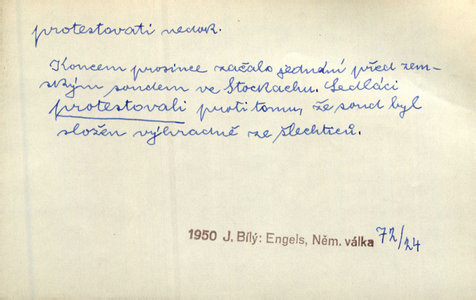 protestovati nedok.
Koncem prosince začalo jednání před zem-
ským soudem ve Stockachu. Sedláci
protestovali proti tomu, že soud byl
složen výhradně ze šlechticů.
1950 J. Bílý: Engels, Něm. válka 72/24